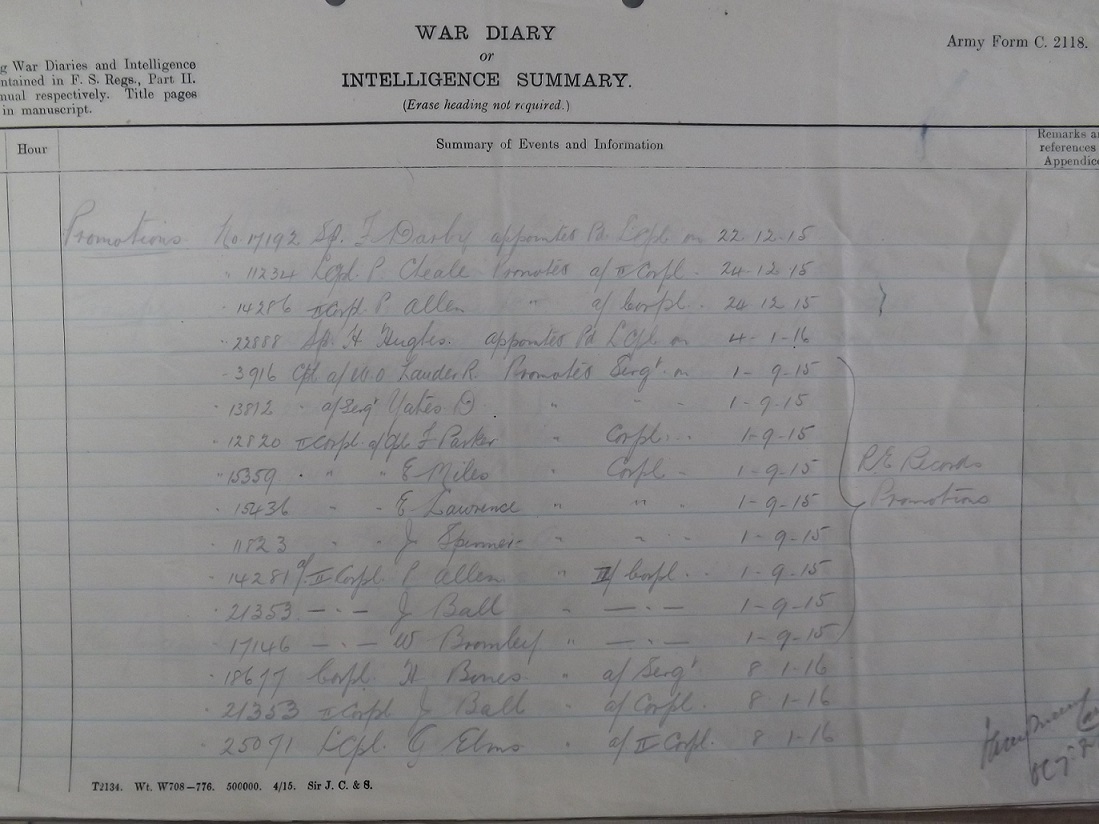 WAR DIARY
or
INTELLIGENCE SUMMARY.
(Erase heading not required.)
Army Form C. 2118.
g War Diaries and Intelligence
ntained in F. S. Regs., Part II.
nual respectively. Title pages
in manuscript.
Hour
Summary of Events and Information
Remarks a
references
Appendice
Promotions. No. 17192 Sp. F Darby appointed Pd LCpl on 22.12.15
" 11234 LCpl. P. Cheale Promoted a/II Corpl. 24-12-15
" 14286 II Corpl. P. Allen " a/Corpl. 24.12.15
" 22888 Sp. H Hughes. appointed Pd LCpl on 4-1-16
" 3916 Cpl a/ Lauder R. Promoted Sergt on 1-9-15
" 13812 " a/Sergt Yates D " " " 1-9-15
" 12820 II Corpl. a/Cpl F Parker " Corpl. " 1-9-15
" 15359 " " " E Miles " Corpl " 1-9-15
" 15436 " " E Lawrence " " " 1-9-15
" 11823 " " J " " " 1-9-15
" 14281 a/II Corpl. P Allen " II/Corpl. " 1-9-15
" 21353 — " — J Ball " — " — 1-9-15
" 17146 — " — W Bromley " — " — 1-9-15
R.E Records
Promotions
" 18677 Corpl. H Bones " a/Sergt 8-1-16
" 21353 II Corpl J Ball " a/Corpl. 8.1-16
" 25071 LCpl. G Elms " a/II Corpl. 8 1-16
T2134. Wt. W708—776. 500000. 4/15. Sir J. C. & S.